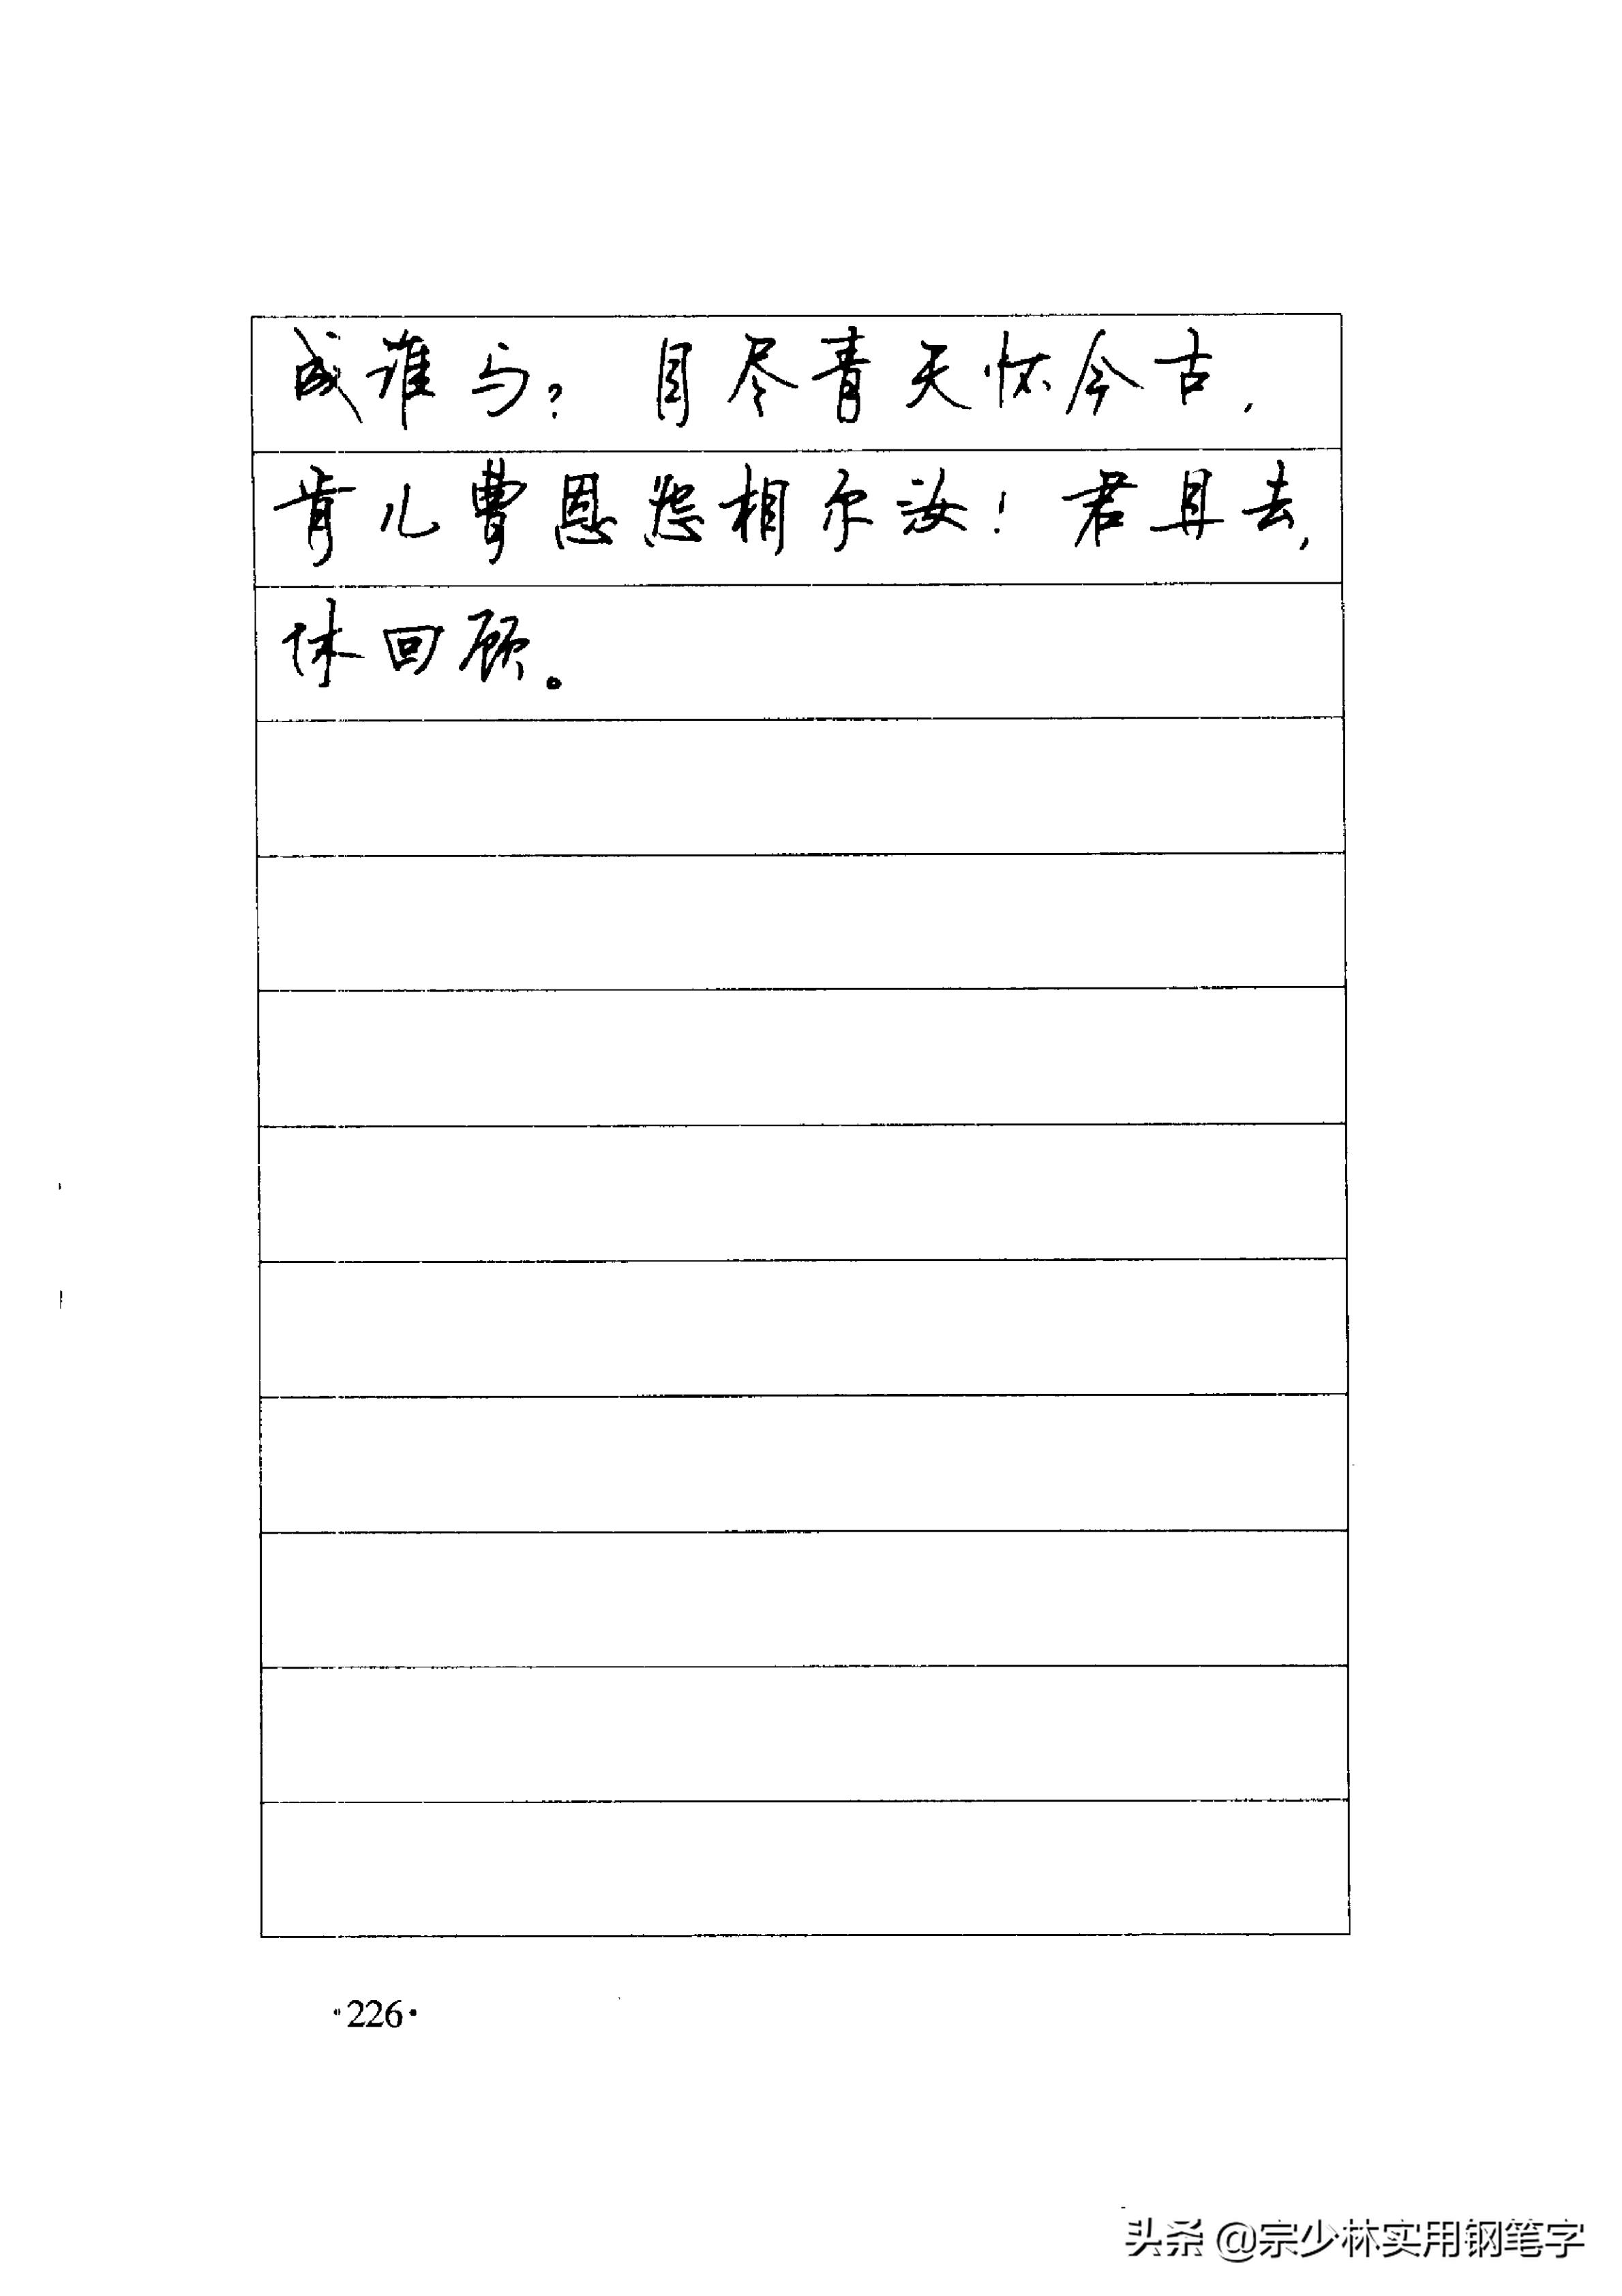 成谁与？目尽青天怀今古，
肯儿曹恩怨相尔汝！君且去，
休回顾。
·226·
头条 @宗少林实用钢笔字